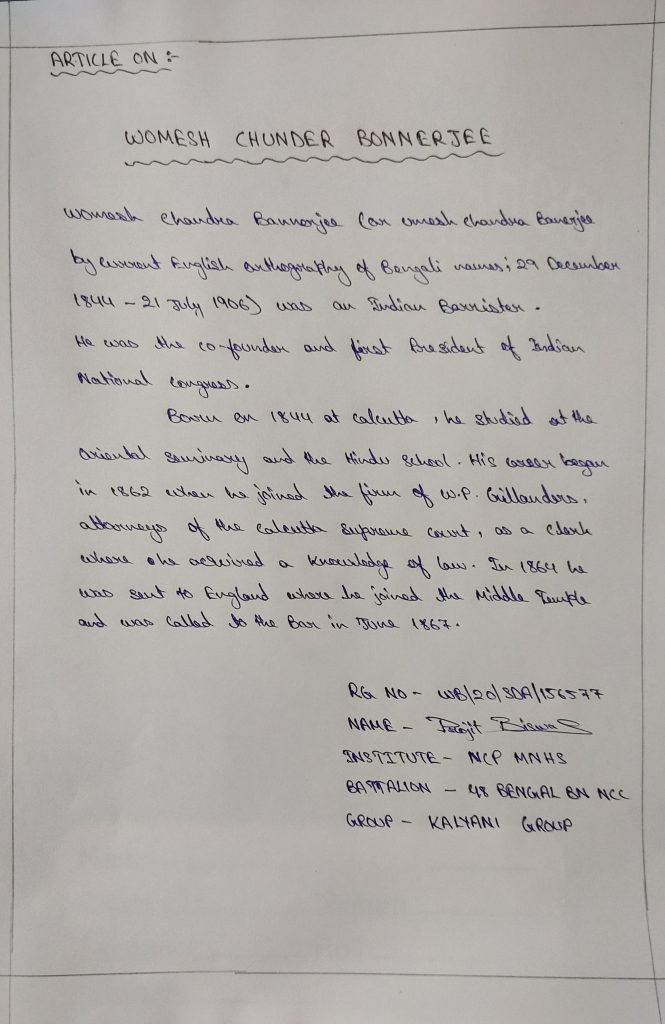 ARTICLE ON :-
WOMESH CHUNDER BONNERJEE
Womesh Chandra Bannerjee (or umesh chandra Banerjee
by current English orthography of Bengali names; 29 December
1844 - 21 July 1906) was an Indian Barrister.
He was the co-founder and first President of Indian
National congress.
Born on 1844 at calcutta, he studied at the
Oriental Seminary and the Hindu School. His career began
in 1862 when he joined the firm of W.P. Gillanders,
attorneys of the Calcutta Supreme court, as a clerk
where he acquired a knowledge of law. In 1864 he
was sent to England where he joined the Middle Temple
and was called to the Bar in June 1867.
RG NO - WB/20/SDA/156577
NAME - Biswas
INSTITUTE - NCP MNHS
BATTALION - 48 BENGAL BN NCC
GROUP - KALYANI GROUP